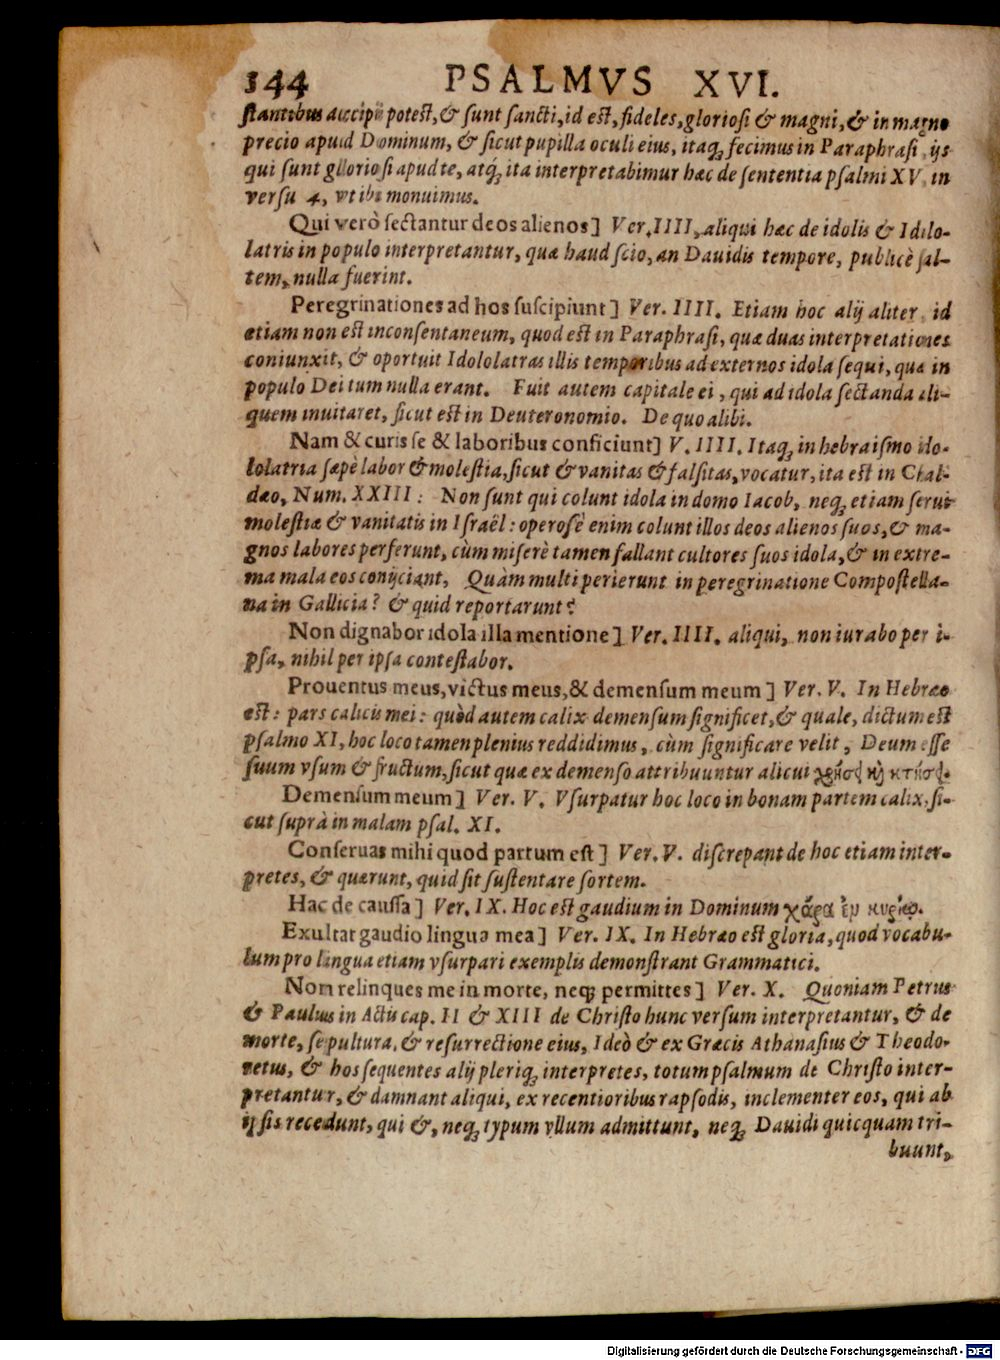 144 PSALMVS XVI.
stantibus accipi potest, & sunt sancti, id est, fideles, gloriosi & magni, & in magno
precio apud Dominum, & sicut pupilla oculi eius, itaq; fecimus in Paraphrasi, ijs
qui sunt gloriosi apud te, atq; ita interpretabimur hæc de sententia psalmi XV. in
versu 4, vt ibi monuimus.
Qui verò sectantur deos alienos] Ver. IIII, aliqui hæc de idolis & Idolo-
latris in populo interpretantur, quæ haud scio, an Dauidis tempore, publicè sal-
tem, nulla fuerint.
Peregrinationes ad hos suscipiunt] Ver. IIII. Etiam hoc alij aliter, id
etiam non est inconsentaneum, quod est in Paraphrasi, quæ duas interpretationes
coniunxit, & oportuit Idololatras illis temporibus ad externos idola sequi, quæ in
populo Dei tum nulla erant. Fuit autem capitale ei, qui ad idola sectanda ali-
quem inuitaret, sicut est in Deuteronomio. De quo alibi.
Nam & curis se & laboribus conficiunt] V. IIII. Itaq; in hebraismo ido-
lolatria sæpè labor & molestia, sicut & vanitas & falsitas, vocatur, ita est in Chal-
dæo, Num. XXIII: Non sunt qui colunt idola in domo Iacob, neq; etiam serui
molestiæ & vanitatis in Israël: operosè enim colunt illos deos alienos suos, & ma-
gnos labores perferunt, cùm miserè tamen fallant cultores suos idola, & in extre-
ma mala eos conijciant, Quàm multi perierunt in peregrinatione Compostella-
na in Gallicia? & quid reportarunt?
Non dignabor idola illa mentione] Ver. IIII. aliqui, non iurabo per i-
psa, nihil per ipsa contestabor.
Prouentus meus, victus meus, & demensum meum] Ver. V. In Hebræo
est: pars calicis mei: quòd autem calix demensum significet, & quale, dictum est
psalmo XI, hoc loco tamen plenius reddidimus, cùm significare velit, Deum esse
suum vsum & fructum, sicut quæ ex demenso attribuuntur alicui χρήσει καὶ κτήσει.
Demensum meum] Ver. V. Vsurpatur hoc loco in bonam partem calix, si-
cut suprà in malam psal. XI.
Conseruas mihi quod partum est] Ver. V. discrepant de hoc etiam inter-
pretes, & quærunt, quid sit sustentare sortem.
Hac de caussa] Ver. IX. Hoc est gaudium in Dominum χάρα ἐν κυρίῳ.
Exultat gaudio lingua mea] Ver. IX. In Hebræo est gloria, quod vocabu-
lum pro lingua etiam vsurpari exemplis demonstrant Grammatici.
Non relinques me in morte, neq; permittes] Ver. X. Quoniam Petrus
& Paulus in Actis cap. II & XIII de Christo hunc versum interpretantur, & de
morte, sepultura, & resurrectione eius, Ideò & ex Græcis Athanasius & Theodo-
retus, & hos sequentes alij pleriq; interpretes, totum psalmum de Christo inter-
pretantur, & damnant aliqui, ex recentioribus rapsodis, inclementer eos, qui ab
ijs sis recedunt, qui &, neq; typum vllum admittunt, neq; Dauidi quicquam tri-
buunt,
Digitalisierung gefördert durch die Deutsche Forschungsgemeinschaft - DFG